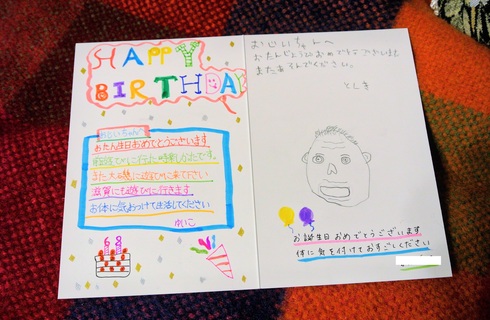 HAPPY
BIRTHDAY
おじいちゃんへ
おたん生日おめでとうございます
遊びに行った時楽しかったです。
また大磯に遊びに来て下さい
滋賀にも遊びに行きます
お体に気おつけて生活してください
ゆいこ
68
おじいちゃんへ
おたんじょうびおめでとうございます
またあそんでください。
としき
お誕生日おめでとうございます
体に気を付けておすごしください